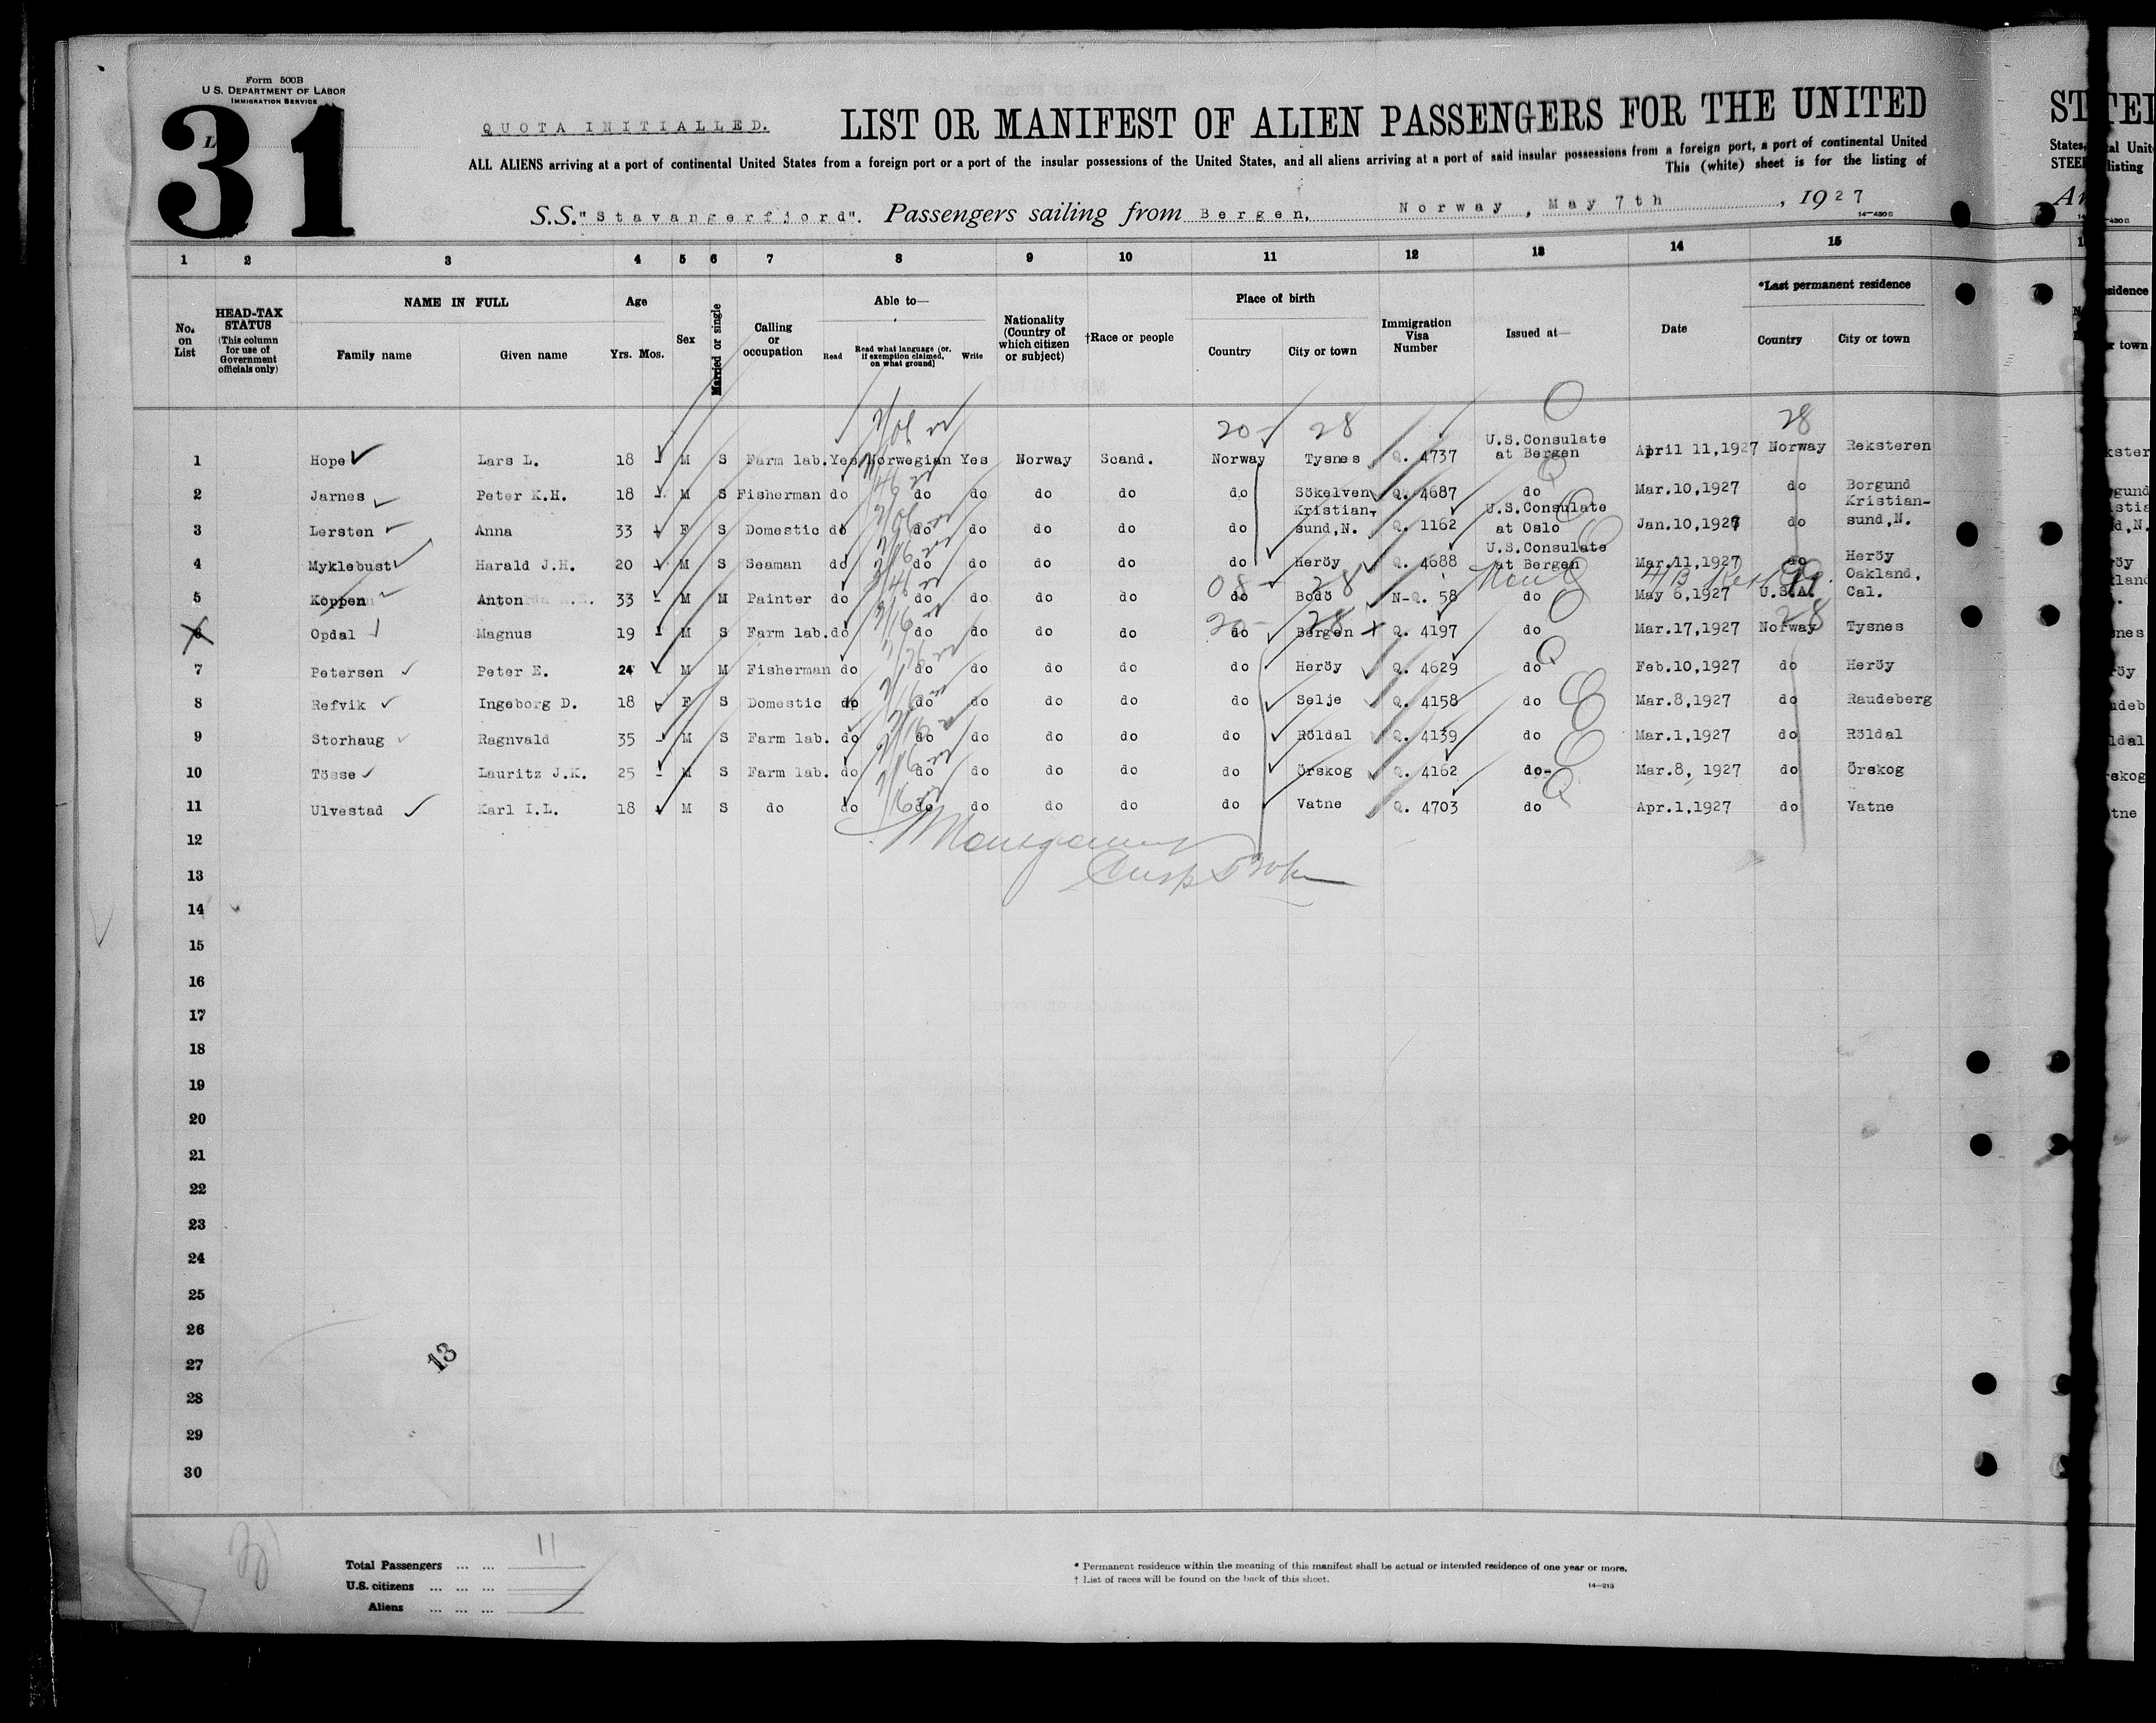 Form 500B
U.S. DEPARTMENT OF LABOR
IMMIGRATION SERVICE
31
QUOTA INITIALLED.
LIST OR MANIFEST OF ALIEN PASSENGERS FOR THE UNITED
ALL ALIENS arriving at a port of continental United States from a foreign port or a port of the insular possessions of the United States, and all aliens arriving at a port of said insular possessions from a foreign port, a port of continental United
This (white) sheet is for the listing of
S.S. "Stavangerfjord". Passengers sailing from Bergen, Norway, May 7th, 1927
14-430 S
1 2 3 4 5 6 7 8 9 10 11 12 13 14 15
No. on List
HEAD-TAX STATUS (This column for use of Government officials only)
NAME IN FULL
Family name Given name
Age
Yrs. Mos.
Sex
Married or single
Calling or occupation
Able to—
Read
Read what language [or, if exemption claimed, on what ground]
Write
Nationality (Country of which citizen or subject)
†Race or people
Place of birth
Country City or town
Immigration Visa Number
Issued at—
Date
*Last permanent residence
Country City or town
20- 28 28
1 Hope Lars L. 18 - M S Farm lab. Yes Norwegian Yes Norway Scand. Norway Tysnes Q. 4737 U.S.Consulate at Bergen April 11,1927 Norway Reksteren
2 Jarnes Peter K.H. 18 - M S Fisherman do do do do do do Sökelven Q. 4687 do Mar.10,1927 do Borgund
3 Lersten Anna 33 - F S Domestic do do do do do do Kristian-sund,N. Q. 1162 U.S.Consulate at Oslo Jan.10,1927 do Kristian-sund,N.
4 Myklebust Harald J.H. 20 - M S Seaman do do do do do do Heröy Q. 4688 U.S.Consulate at Bergen Mar.11,1927 do Heröy
08- 28
5 Koppen Anton 33 - M M Painter do do do do do do Bodö N-Q. 58 do May 6,1927 U.S.A. Oakland, Cal.
20- 28 28
6 Opdal Magnus 19 - M S Farm lab. do do do do do do Bergen Q. 4197 do Mar.17,1927 Norway Tysnes
7 Petersen Peter E. 24 - M M Fisherman do do do do do do Heröy Q. 4629 do Feb.10,1927 do Heröy
8 Refvik Ingeborg D. 18 - F S Domestic do do do do do do Selje Q. 4158 do Mar.8,1927 do Raudeberg
9 Storhaug Ragnvald 35 - M S Farm lab. do do do do do do Röldal Q. 4139 do Mar.1,1927 do Röldal
10 Tösse Lauritz J.K. 25 - M S Farm lab. do do do do do do Örskog Q. 4162 do- Mar.8, 1927 do Örskog
11 Ulvestad Karl I.L. 18 M S do do do do do do do Vatne Q. 4703 do Apr.1,1927 do Vatne
12
13
14
15
16
17
18
19
20
21
22
23
24
25
26
27
28
29
30
13
Total Passengers ... ... 11
U.S. citizens ... ... ...
Aliens ... ... ...
* Permanent residence within the meaning of this manifest shall be actual or intended residence of one year or more.
† List of races will be found on the back of this sheet.
14-213